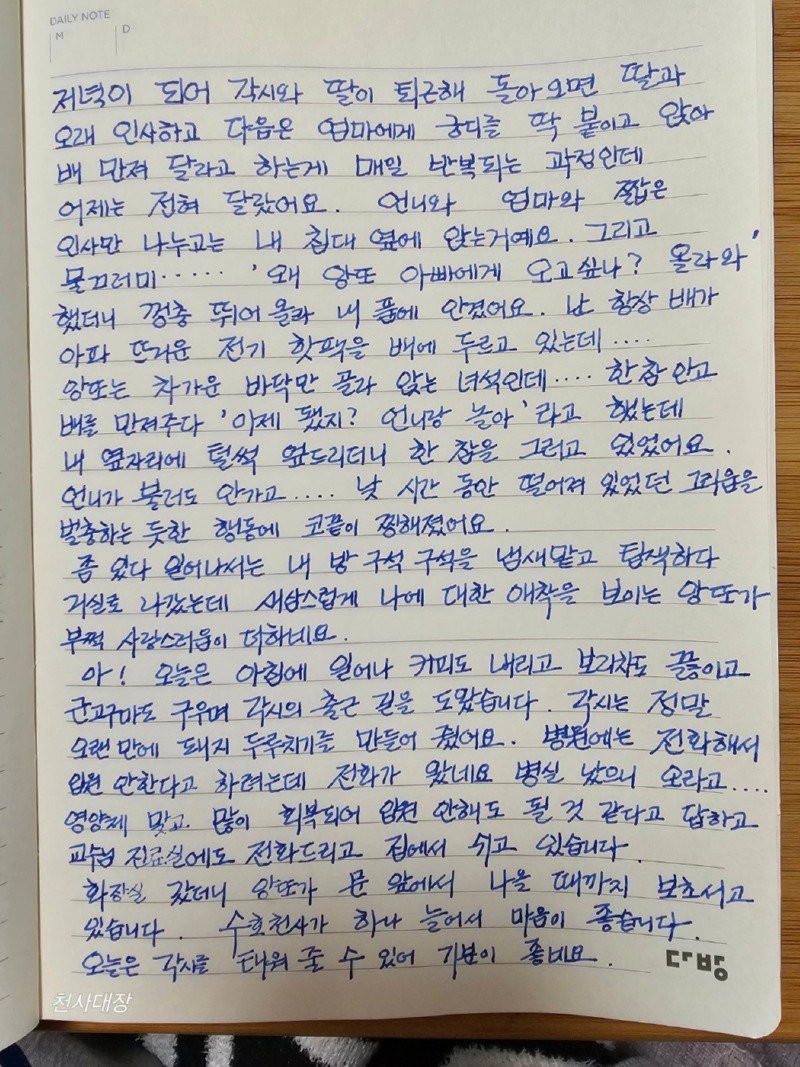 DAILY NOTE
M D
저녁이 되어 각시와 딸이 퇴근해 돌아오면 딸과
오래 인사하고 다음은 엄마에게 궁디를 딱 붙이고 앉아
배 만져 달라고 하는게 매일 반복되는 과정인데
어제는 전혀 달랐어요. 언니와 엄마와 짧은
인사만 나누고는 내 침대 옆에 앉는거예요. 그리고
물끄러미...... '왜 앙또 아빠에게 오고싶나? 올라와'
했더니 껑충 뛰어올라 내 품에 안겼어요. 난 항상 배가
아파 뜨거운 전기 핫팩을 배에 두르고 있는데....
앙또는 차가운 바닥만 골라 앉는 녀석인데.... 한참 안고
배를 만져주다 '이제 됐지? 언니랑 놀아'라고 했는데
내 옆자리에 털썩 엎드리더니 한 참을 그러고 있었어요.
언니가 불러도 안가고.... 낮 시간 동안 떨어져 있었던 그리움을
벌충하는 듯한 행동에 코끝이 찡해졌어요.
좀 있다 일어나서는 내 방 구석 구석을 냄새맡고 탐색하다
거실로 나갔는데 새삼스럽게 나에 대한 애착을 보이는 앙또가
부쩍 사랑스러움이 더하네요.
아! 오늘은 아침에 일어나 커피도 내리고 보리차도 끓이고
군고구마도 구우며 각시의 출근 길을 도왔습니다. 각시는 정말
오랜만에 돼지 두루치기를 만들어 줬어요. 병원에는 전화해서
입원 안한다고 하려는데 전화가 왔네요 병실 났으니 오라고....
영양제 맞고 많이 회복되어 입원 안해도 될 것 같다고 답하고
교수님 진료실에도 전화드리고 집에서 쉬고 있습니다.
화장실 갔더니 앙또가 문 앞에서 나올 때까지 보초서고
있습니다. 수호천사가 하나 늘어서 마음이 좋습니다.
오늘은 각시를 태워 줄 수 있어 기분이 좋네요.
다방
천사대장